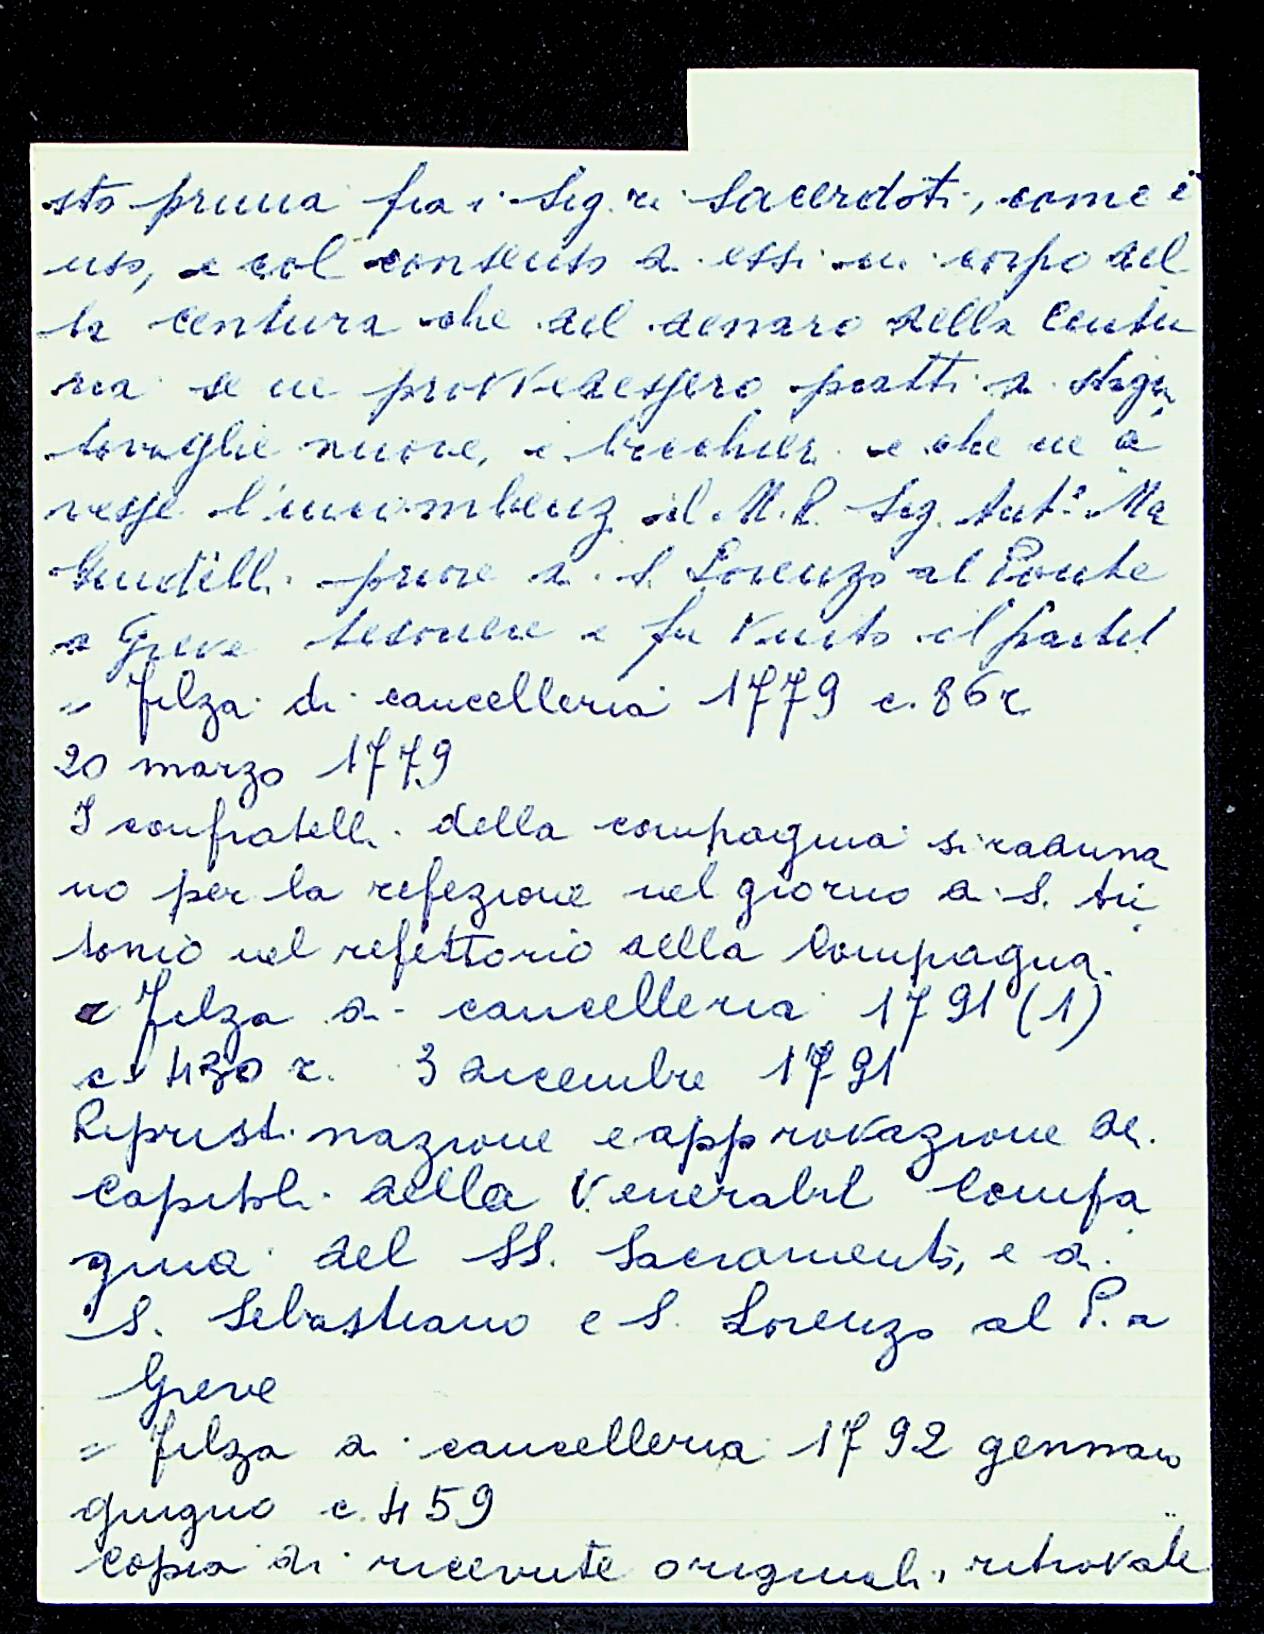 sto prima fra i Sig.ri Sacerdoti, come è
uso, e col consenso di essi in corpo del
la centura che del denaro della Centu
ria se ne provvedessero piatti di stagn
tovaglie nuove, e bicchieri e che ne a
vesse l'incombenz il M.R. Sig. Ant.o Ma
priore di S. Lorenzo al Ponte
a Greve tesoriere e fu vinto il partit
= Filza di cancelleria 1779 c. 86r
20 marzo 1779
I confratelli della compagnia si raduna
no per la refezione nel giorno di S. An
tonio nel refettorio della Compagnia.
= Filza di cancelleria 1791 (1)
c. 430 r. 3 dicembre 1791
Ripristinazione e approvazione dei
Capitoli della Venerabil Compa
gnia del SS. Sacramento, e di
S. Sebastiano e S. Lorenzo al P. a
Greve
= Filza di cancelleria 1792 gennaio
giugno c. 459
Copia di ricevute originali, ritrovate